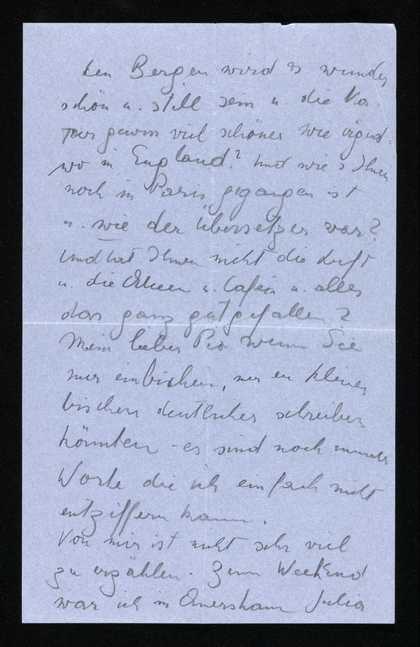 den Bergen wird es wunder
schön u. still sein u. die Na-
tur gewiss viel schöner wie irgend-
wo in England? Und wie's Ihnen
noch in Paris gegangen ist
u. wie der Übersetzer war?
Und hat Ihnen nicht die Luft
u. die Alleen u. Cafés u. alles
das ganz gut gefallen?
Mein lieber Pio wenn Sie
nur ein bischen, nur ein kleines
bischen deutlicher schreiben
könnten - es sind noch immer
Worte die ich einfach nicht
entziffern kann.
Von mir ist nicht sehr viel
zu erzählen. Zum Weekend
war ich in Amersham Julia